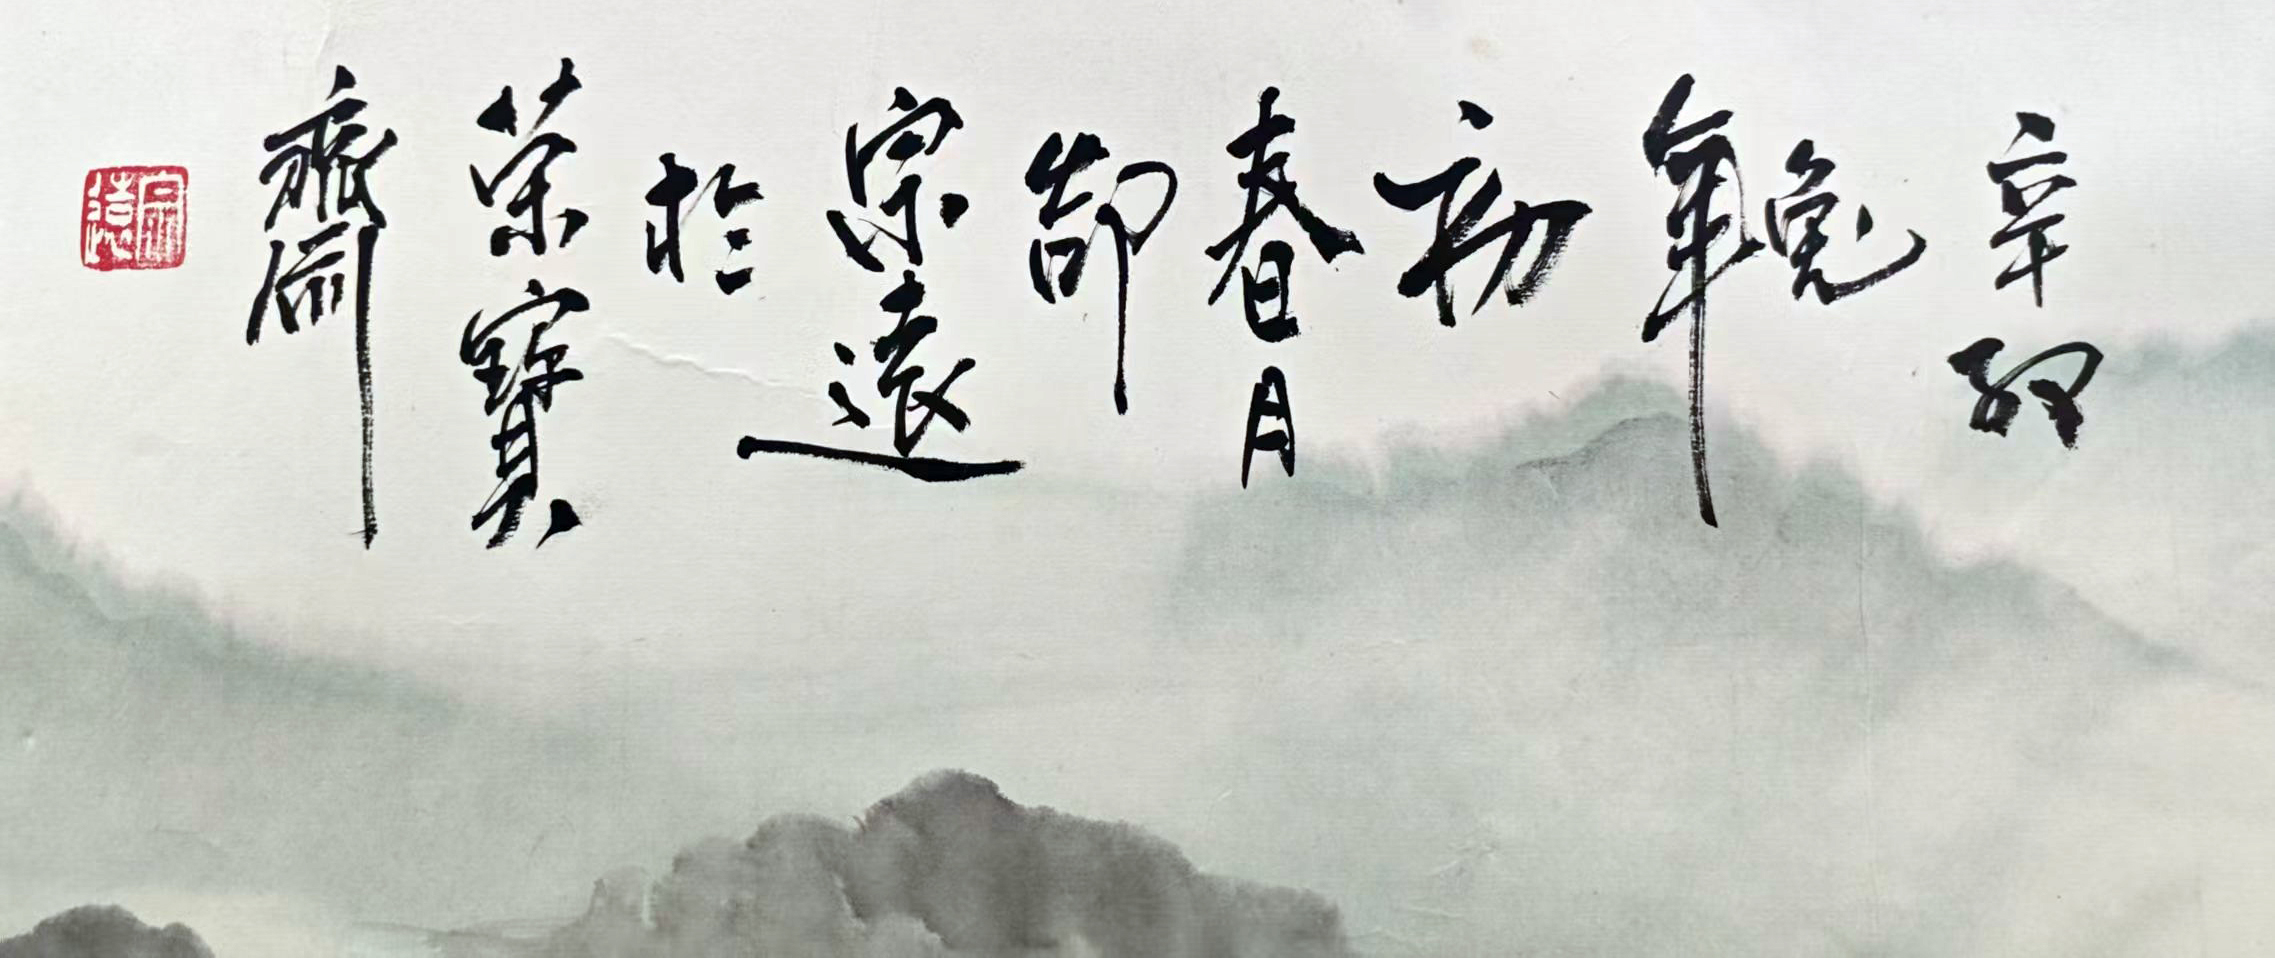 辛卯
兔年
初
春月
郜
宗遠
於
荣寶
齋
宗遠